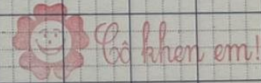 Cô khen em!